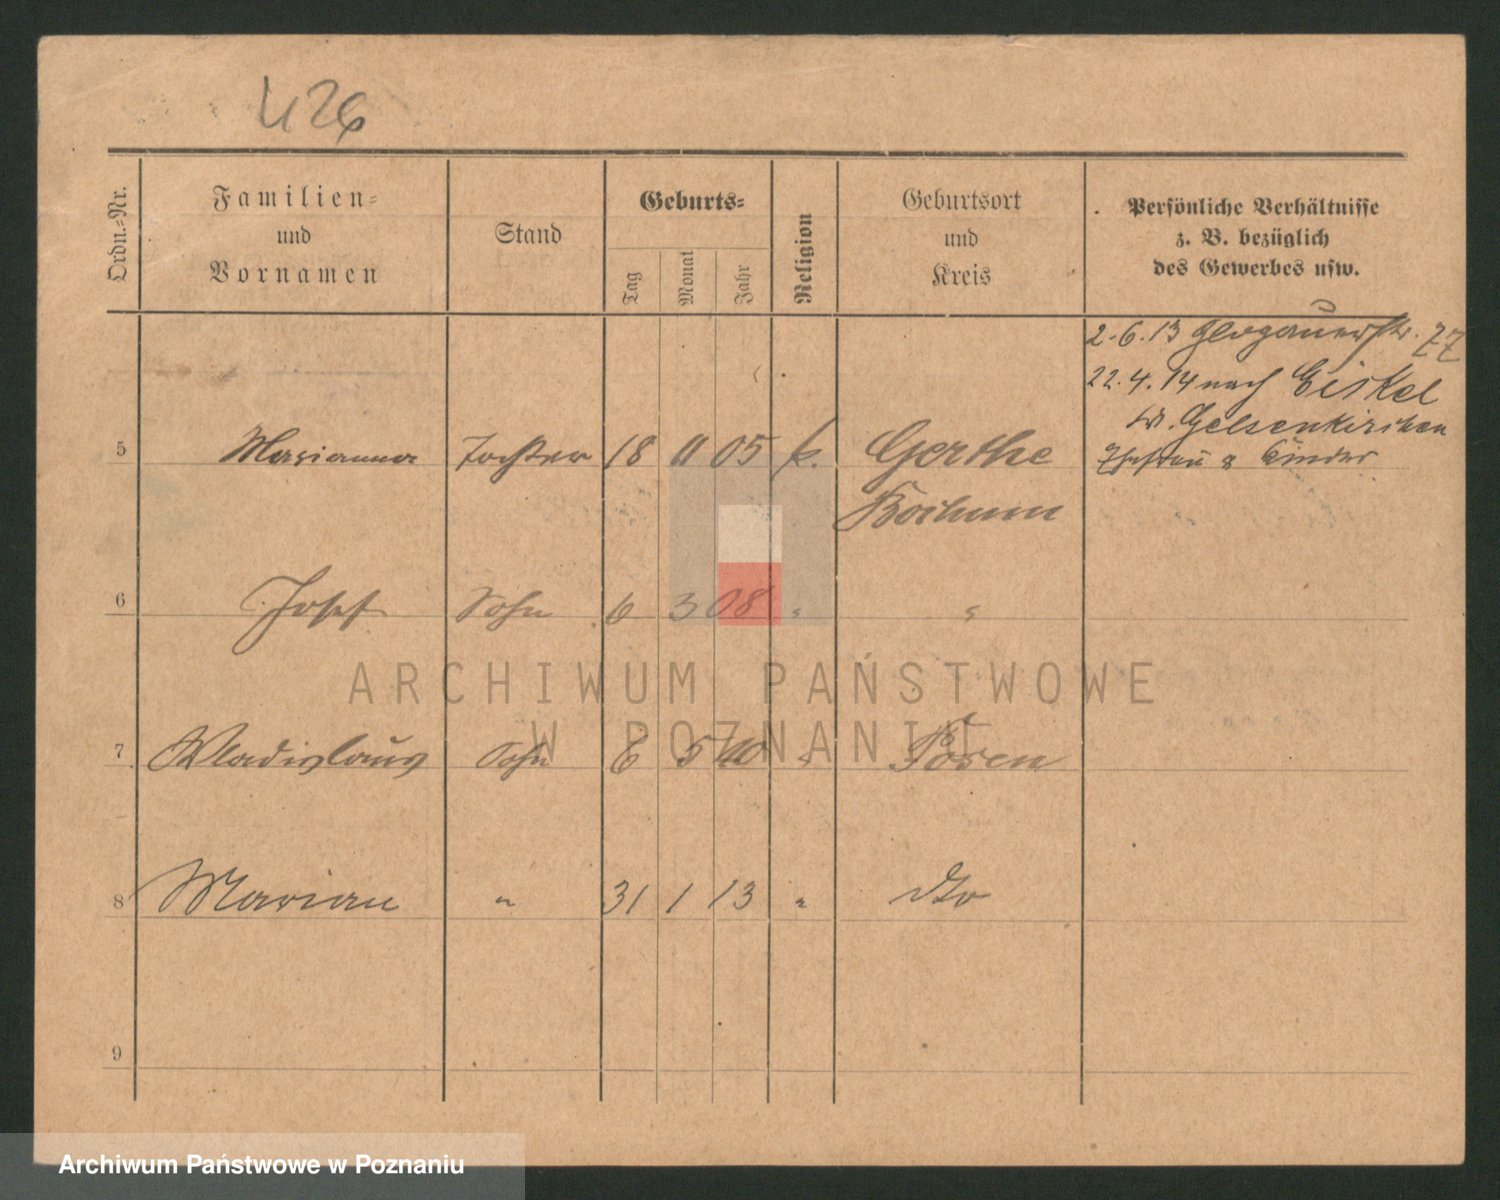 426
Ordn.-Nr.
Familien-
und
Vornamen
Stand
Geburts-
Tag
Monat
Jahr
Religion
Geburtsort
und
Kreis
Persönliche Verhältnisse
z. B. bezüglich
des Gewerbes usw.
2.6.13 Glogauerstr. 77
22.4.14 nach Eickel
Gelsenkirchen
Ehefrau & Kinder
5 Marianna Tochter 18 11 05 k. Gerthe
Bochum
6 Josef Sohn 6 3 08 " "
7 Wladislaus Sohn 6 5 10 " Posen
8 Marian " 31 1 13 " dto
9
ARCHIWUM PAŃSTWOWE
W POZNANIU
Archiwum Państwowe w Poznaniu